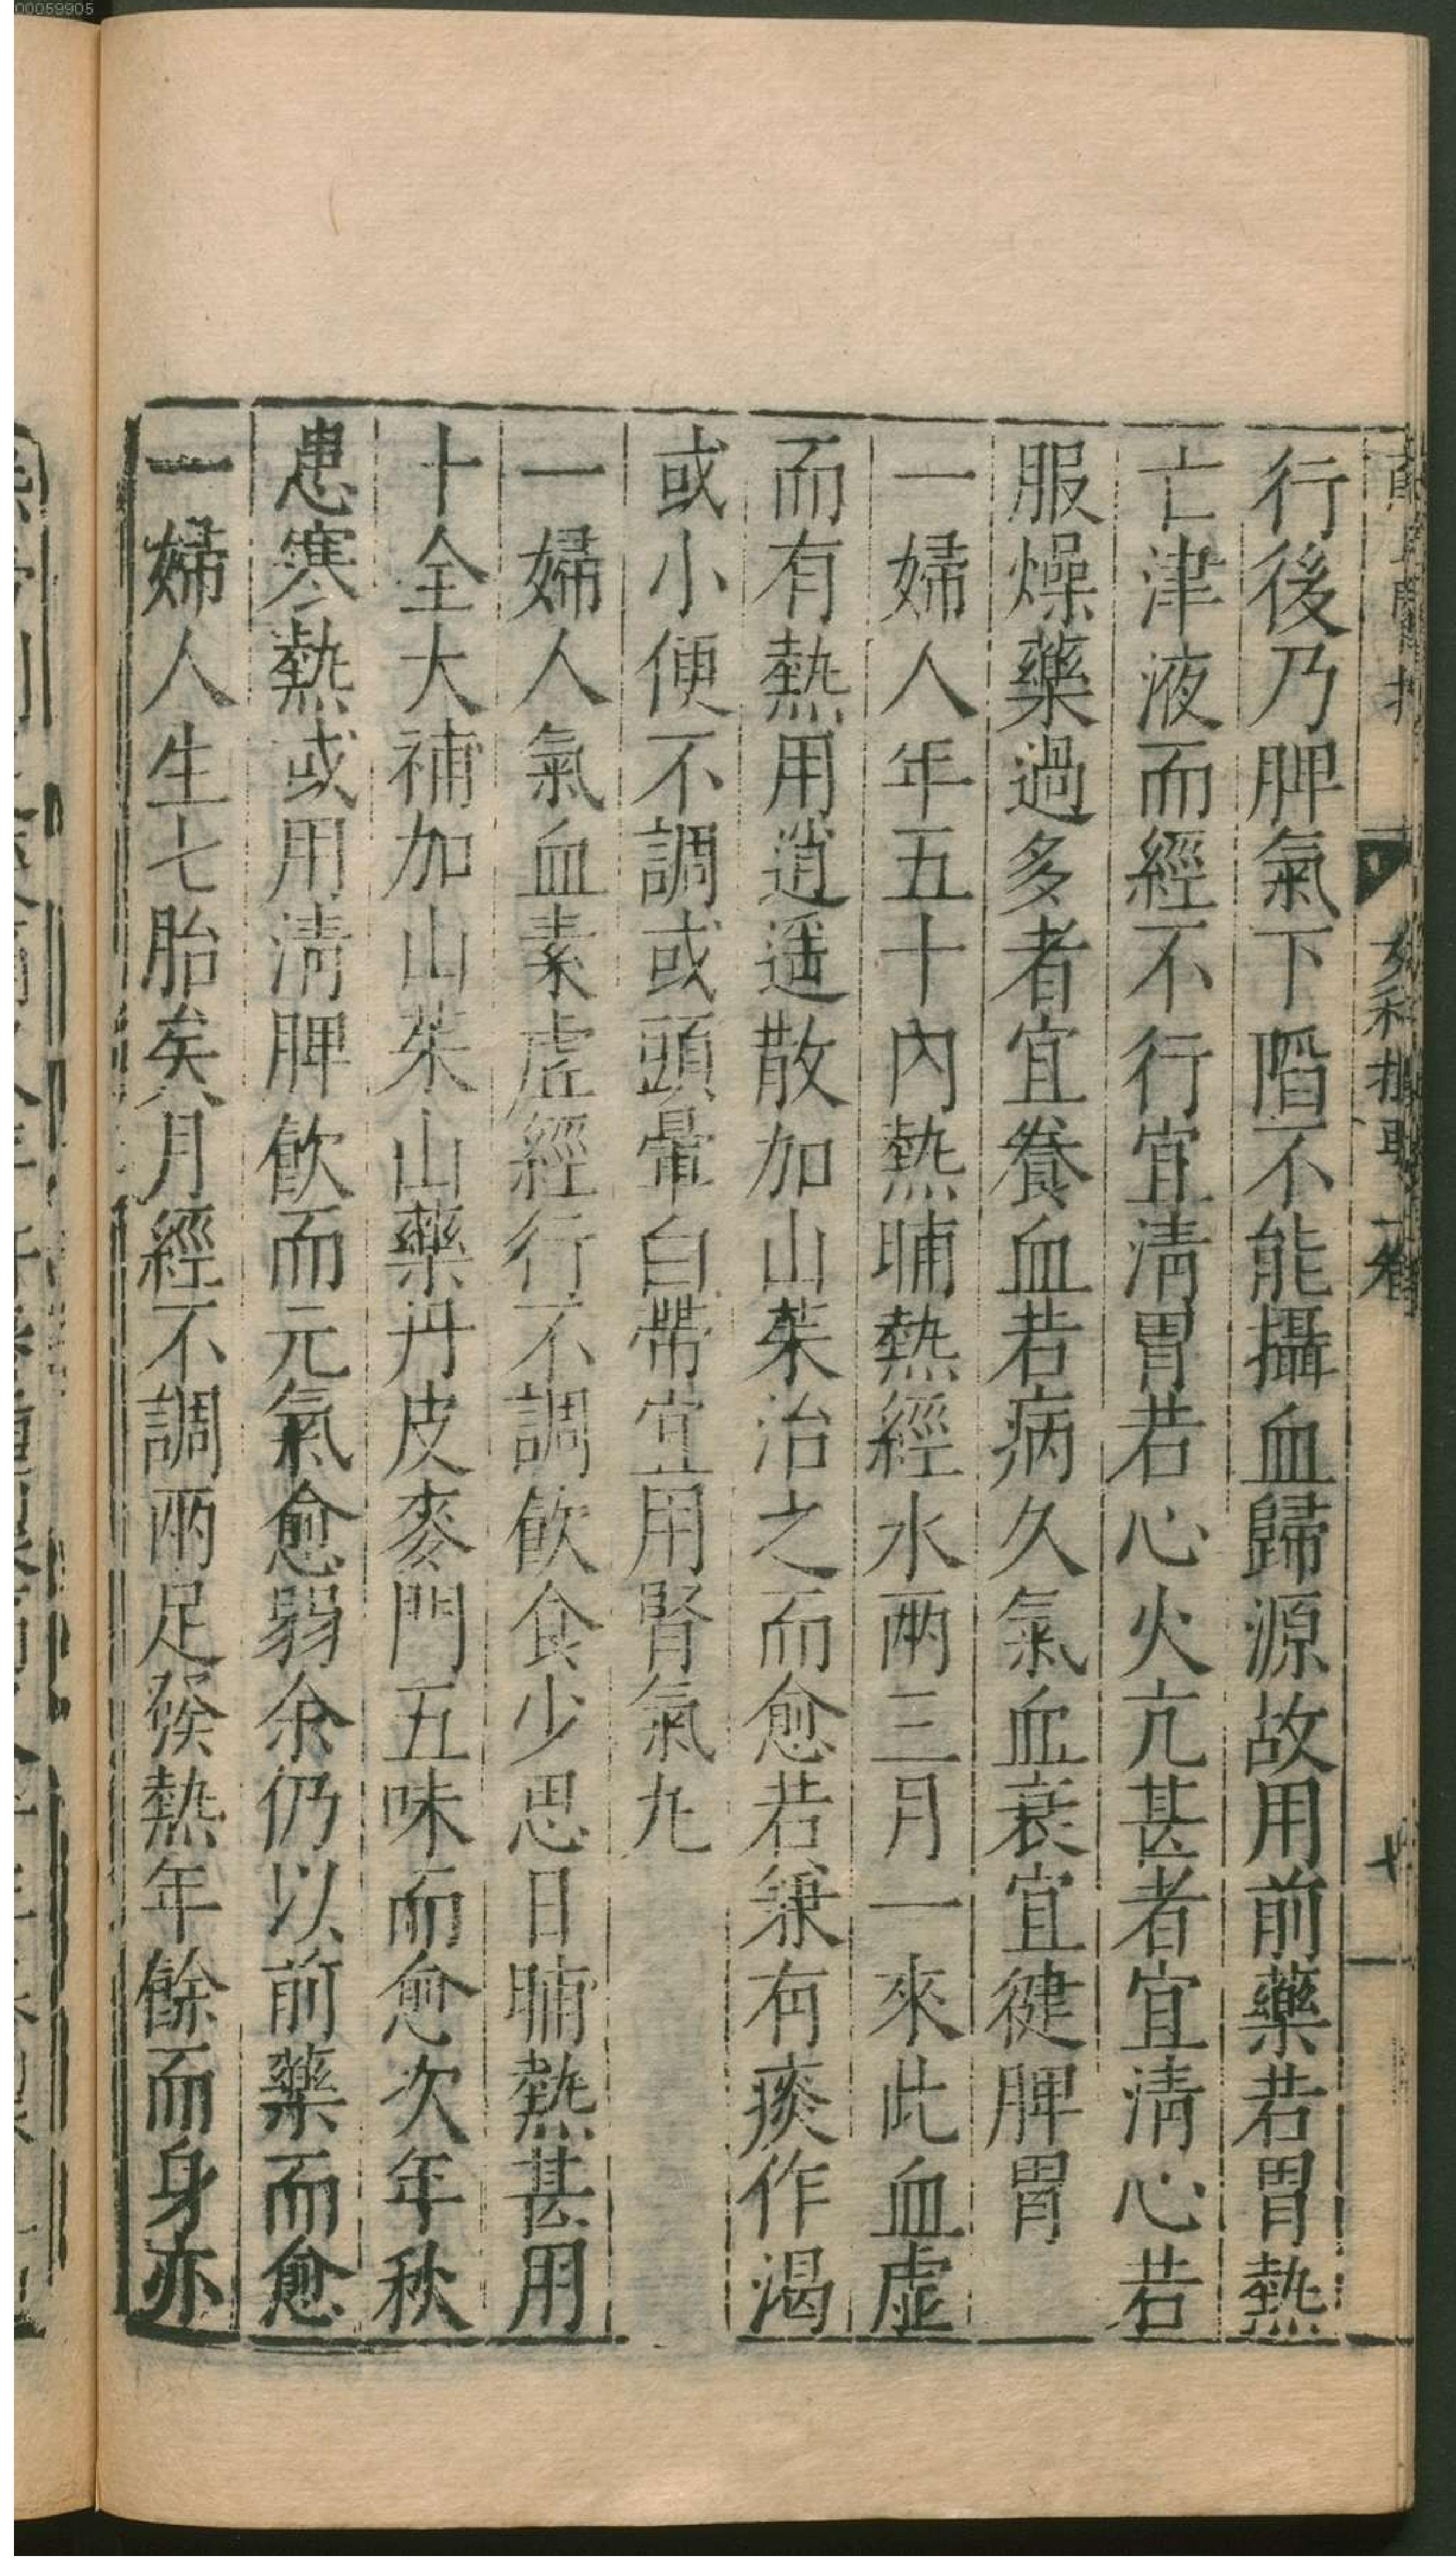 00059905
女科撮要 上卷
七
行後乃脾氣下陷不能攝血歸源故用前藥若胃熱
亡津液而經不行宜清胃若心火亢甚者宜清心若
服燥藥過多者宜養血若病久氣血衰宜健脾胃
一婦人年五十內熱晡熱經水兩三月一來此血虛
而有熱用逍遥散加山茱治之而愈若兼有痰作渴
或小便不調或頭暈白帶宜用腎氣丸
一婦人氣血素虛經行不調飲食少思日晡熱甚用
十全大補加山茱山藥丹皮麥門五味而愈次年秋
患寒熱或用清脾飲而元氣愈弱余仍以前藥而愈
一婦人生七胎矣月經不調兩足發熱年餘而身亦